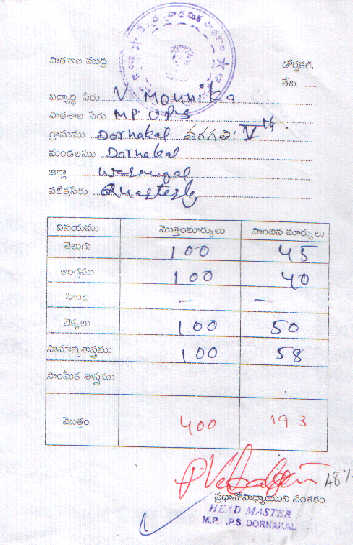 డోర్నకల్,
తేది
విద్యార్థి పేరు V. Mounika
పాఠశాల పేరు M.P. U.P.S
గ్రామము Dornakal తరగతి: Vth
మండలము Dornakal
జిల్లా Warangal
పరీక్షపేరు Quarterly
విషయము మొత్తంమార్కులు సాధించిన మార్కులు
తెలుగు 100 45
ఆంగ్లము 100 40
హింది — —
లెక్కలు 100 50
సామాన్య శాస్త్రము 100 58
సాంఘీక శాస్త్రము
మొత్తం 400 193
48%
ప్రధానోపాధ్యాయుని సంతకం
HEAD MASTER
M.P. .PS DORNAKAL